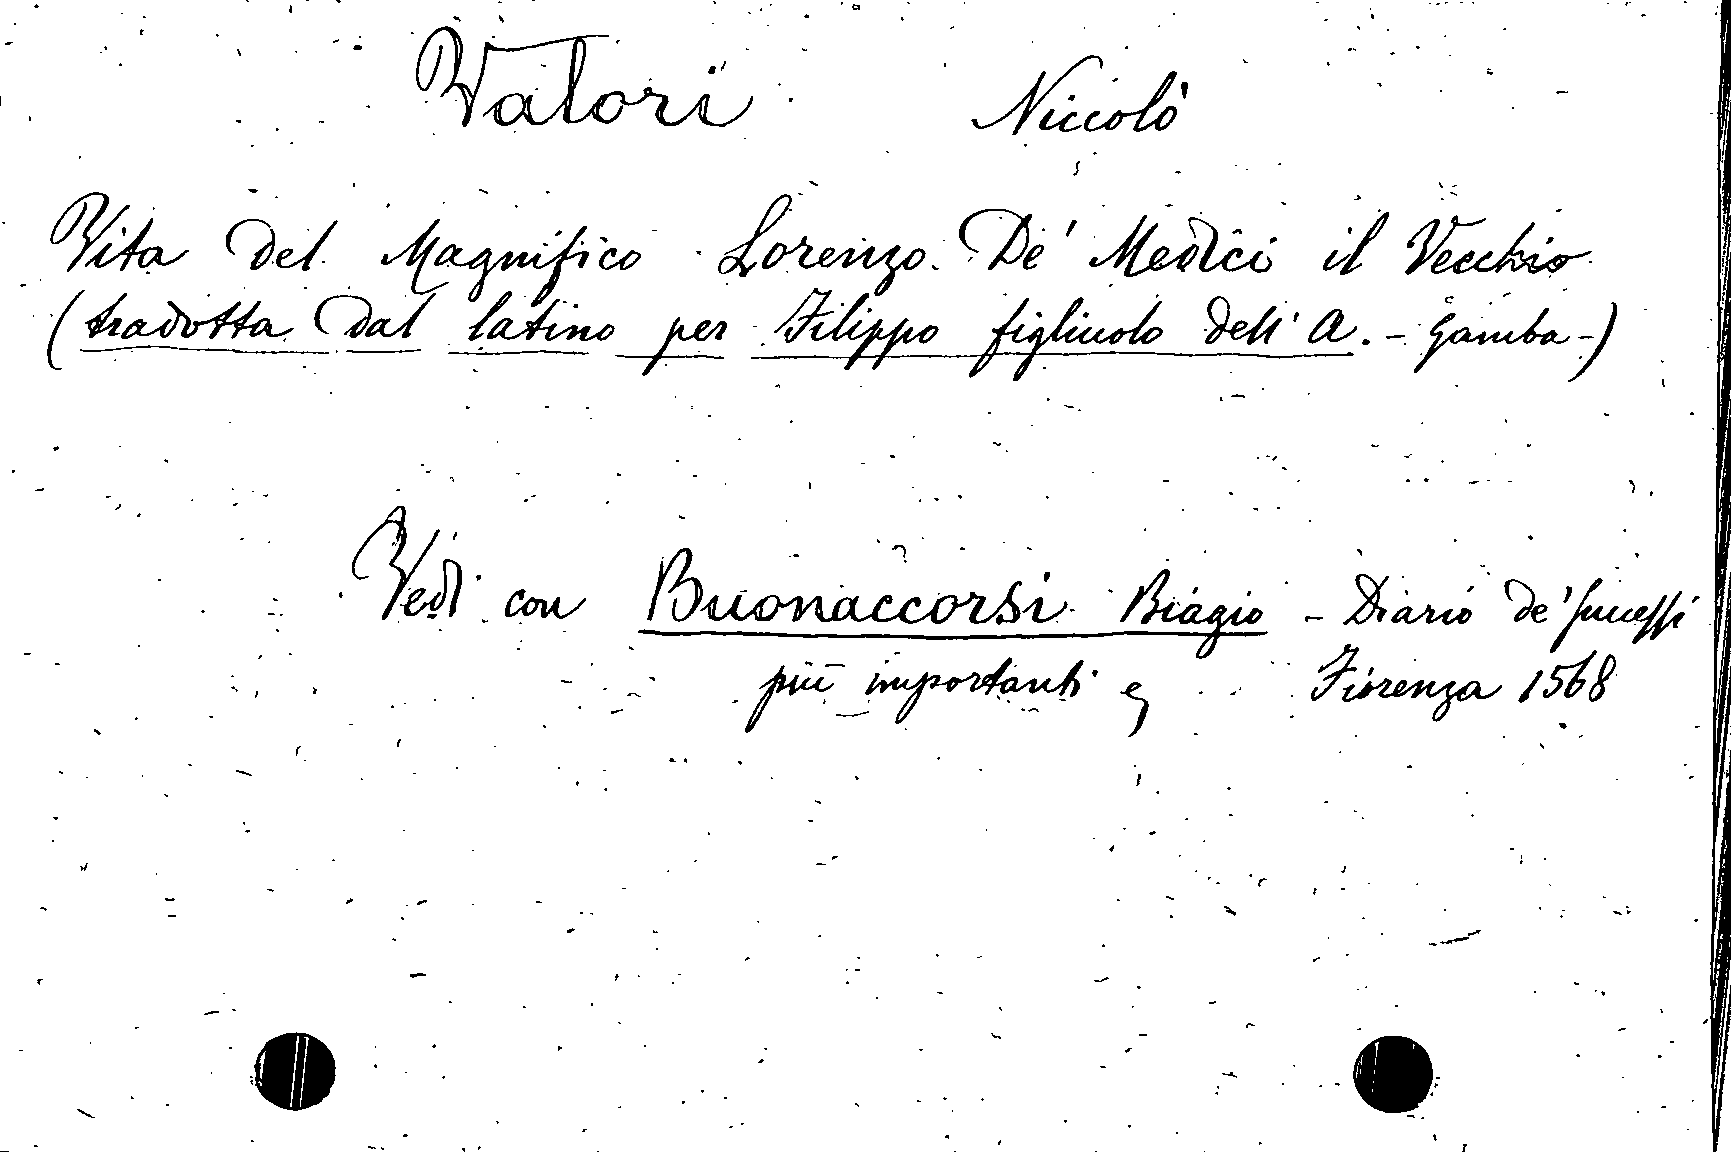 Valori Niccolò
Vita del Magnifico Lorenzo De' Medici il Vecchio
(tradotta dal latino per Filippo figliuolo dell'A. - Gamba -)
Vedi con Buonaccorsi Biagio - Diario de' successi
più importanti Fiorenza 1568